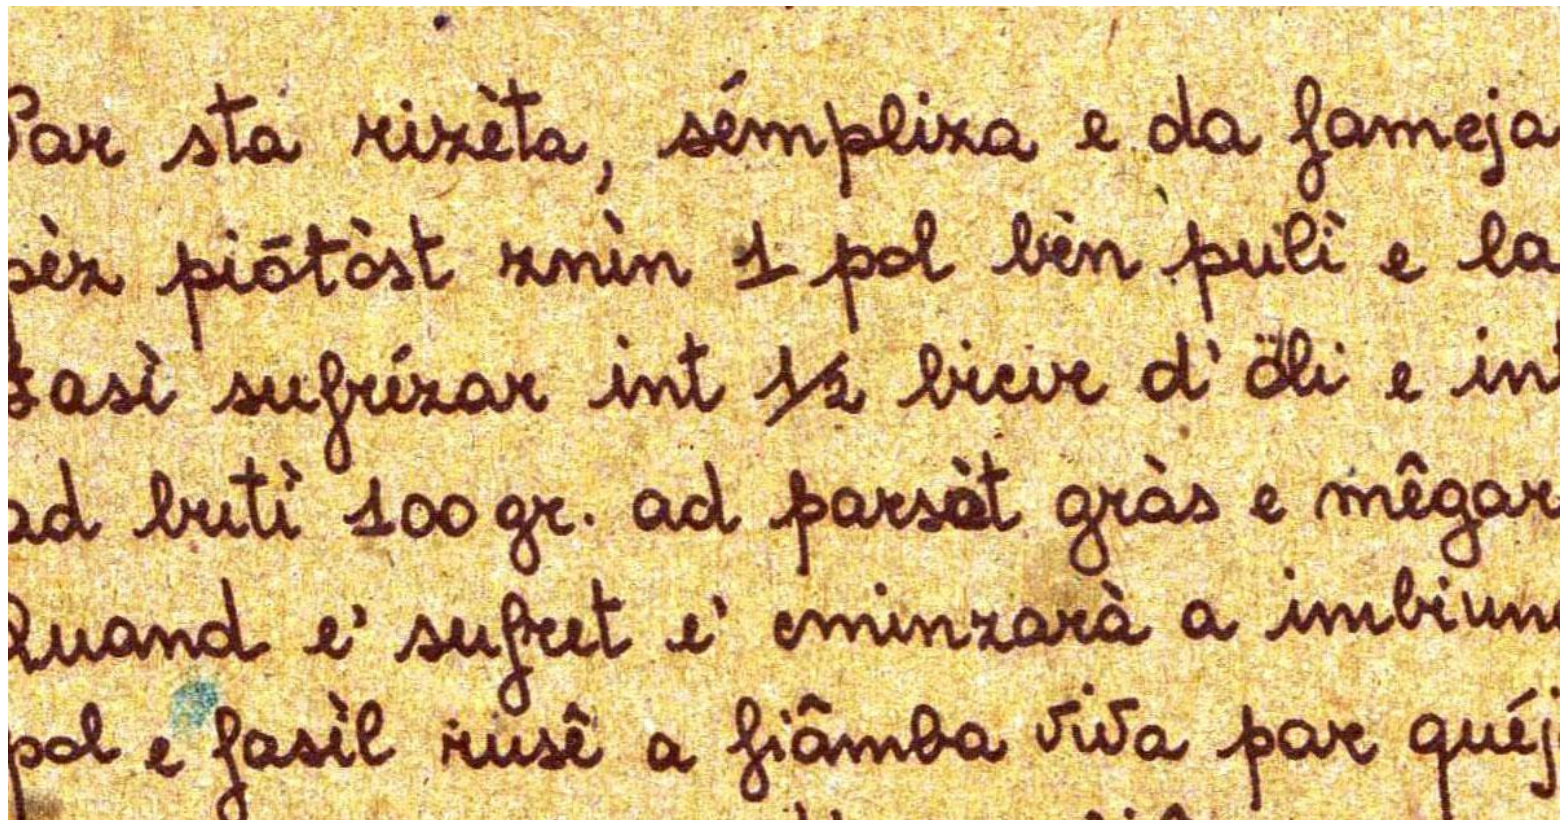 Par sta rizèta, sémpliza e da fameja
pèz piötòst znìn 1 pol bèn pulì e la
fasì sufrízar int 1/2 bicir d' öli e int
ad brutì 100 gr. ad parsòt gràs e mêgar
Quand e' sufret e' cminzarà a imbiun
pol e fasìl rusê a fiâmba viva par quéj